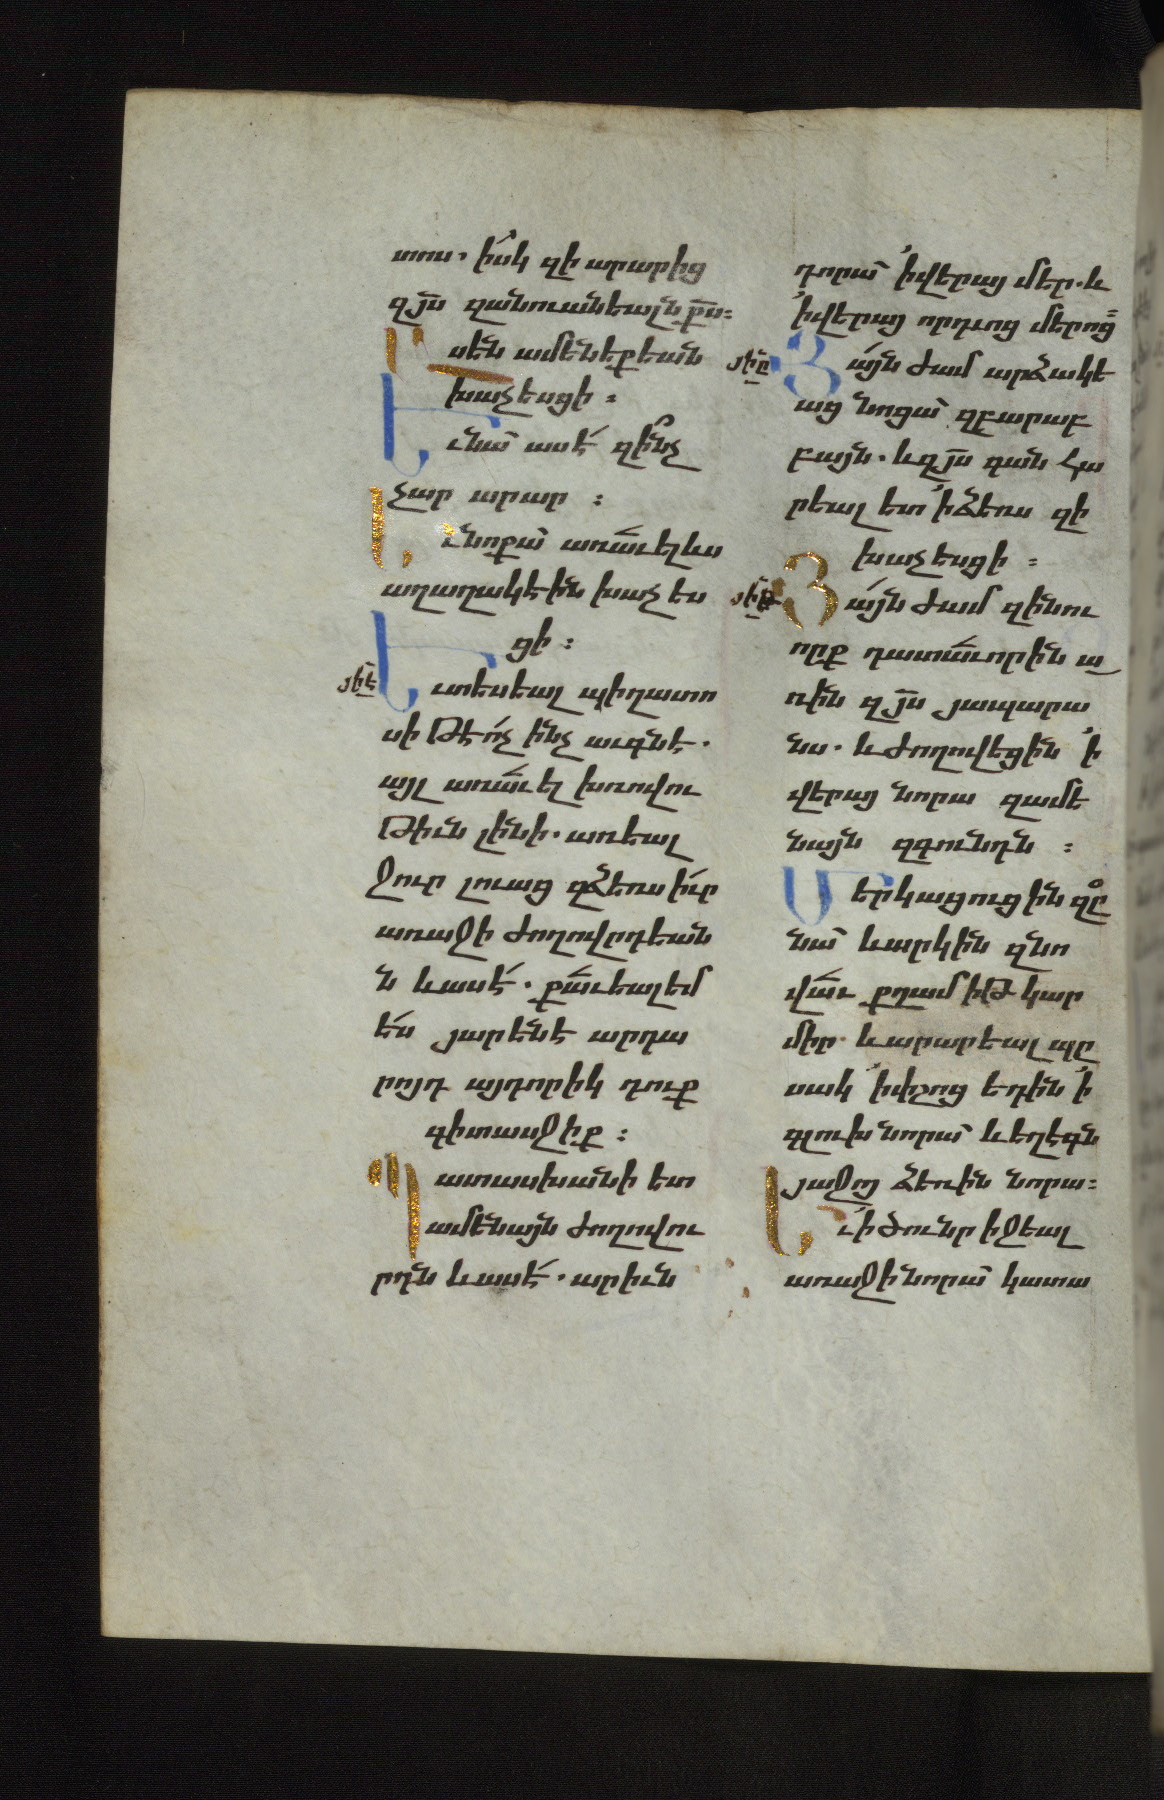 տոս. իսկ զի արարից
զյս զանուանեալն քս։
Ասեն ամենեքեան
խաչեսցի։
Եւ նա ասէ զինչ
չար արար։
Եւ նոքա առաւելևս
աղաղակէին խաչես
ցի։
յիէ
Եւ տեսեալ պիղատո
սի թէ ոչ ինչ աւգնէ.
այլ առաւել խռովու
թիւն լինի. առեալ
ջուր լուաց զձեռս իւր
առաջի ժողովրդեան
ն և ասէ. քաւեալ եմ
ես յարենէ արդա
րոյդ այդորիկ դուք
գիտասջիք։
Պատասխանի ետ
ամենայն ժողովու
րդն և ասէ. արիւն
դորա ի վերայ մեր. և
ի վերայ որդւոց մերոց
յիը
Յայն ժամ արձակե
աց նոցա զբարաբ
բայն. և զյս գան հա
րեալ ետ ի ձեռս զի
խաչեսցի։
յիթ
Յայն ժամ զինու
որք դատաւորին ա
ռին զյս յապարա
նս. և ժողովեցին ի
վերայ նորա զամե
նայն զգունդն։
Մերկացուցին զը
նա և արկին զնո
վաւ քղամիթ կար
միր. և արարեալ պը
սակ ի փշոց եդին ի
գլուխ նորա և եղէգն
յաջոյ ձեռին նորա։
Եւ ի ծունր իջեալ
առաջի նորա կատա